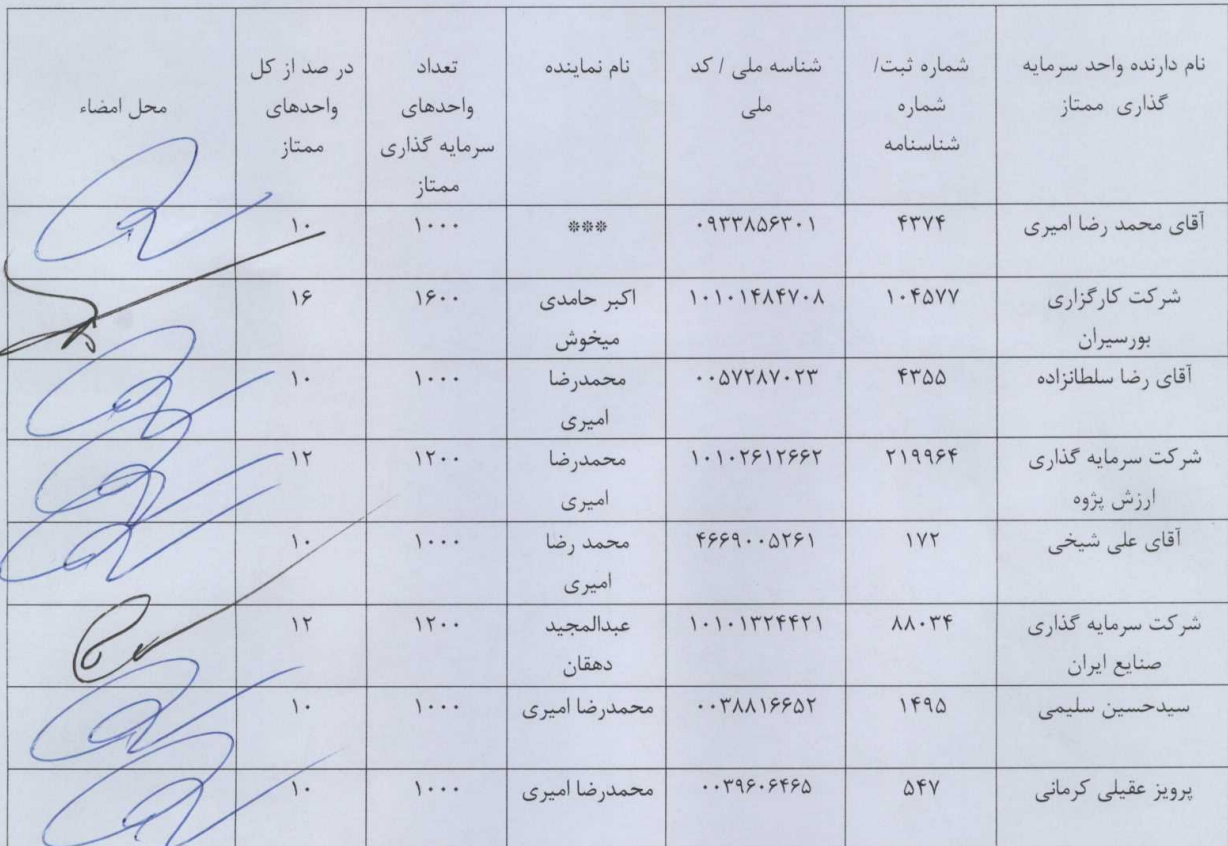 نام دارنده واحد سرمایه گذاری ممتاز | شماره ثبت/ شماره شناسنامه | شناسه ملی / کد ملی | نام نماینده | تعداد واحدهای سرمایه گذاری ممتاز | در صد از کل واحدهای ممتاز | محل امضاء
آقای محمد رضا امیری | ۴۳۷۴ | ۰۹۳۳۸۵۶۳۰۱ | *** | ۱۰۰۰ | ۱۰
شرکت کارگزاری بورسیران | ۱۰۴۵۷۷ | ۱۰۱۰۱۴۸۴۷۰۸ | اکبر حامدی میخوش | ۱۶۰۰ | ۱۶
آقای رضا سلطانزاده | ۴۳۵۵ | ۰۰۵۷۲۸۷۰۲۳ | محمدرضا امیری | ۱۰۰۰ | ۱۰
شرکت سرمایه گذاری ارزش پژوه | ۲۱۹۹۶۴ | ۱۰۱۰۲۶۱۲۶۶۲ | محمدرضا امیری | ۱۲۰۰ | ۱۲
آقای علی شیخی | ۱۷۲ | ۴۶۶۹۰۰۵۲۶۱ | محمد رضا امیری | ۱۰۰۰ | ۱۰
شرکت سرمایه گذاری صنایع ایران | ۸۸۰۳۴ | ۱۰۱۰۱۳۲۴۴۲۱ | عبدالمجید دهقان | ۱۲۰۰ | ۱۲
سیدحسین سلیمی | ۱۴۹۵ | ۰۰۳۸۸۱۶۶۵۲ | محمدرضا امیری | ۱۰۰۰ | ۱۰
پرویز عقیلی کرمانی | ۵۴۷ | ۰۰۳۹۶۰۶۴۶۵ | محمدرضا امیری | ۱۰۰۰ | ۱۰